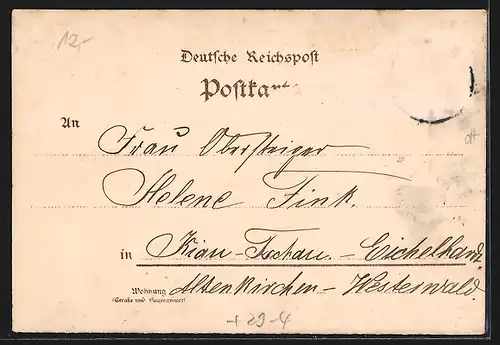 12,-
Deutsche Reichspost
Postkarte
An
Frau Obersteiger
Helene Fink.
in Kiau-Tschau. - Eichelhardt
Wohnung Altenkirchen - Westerwald.
(Straße und Hausnummer)
+ 29-4